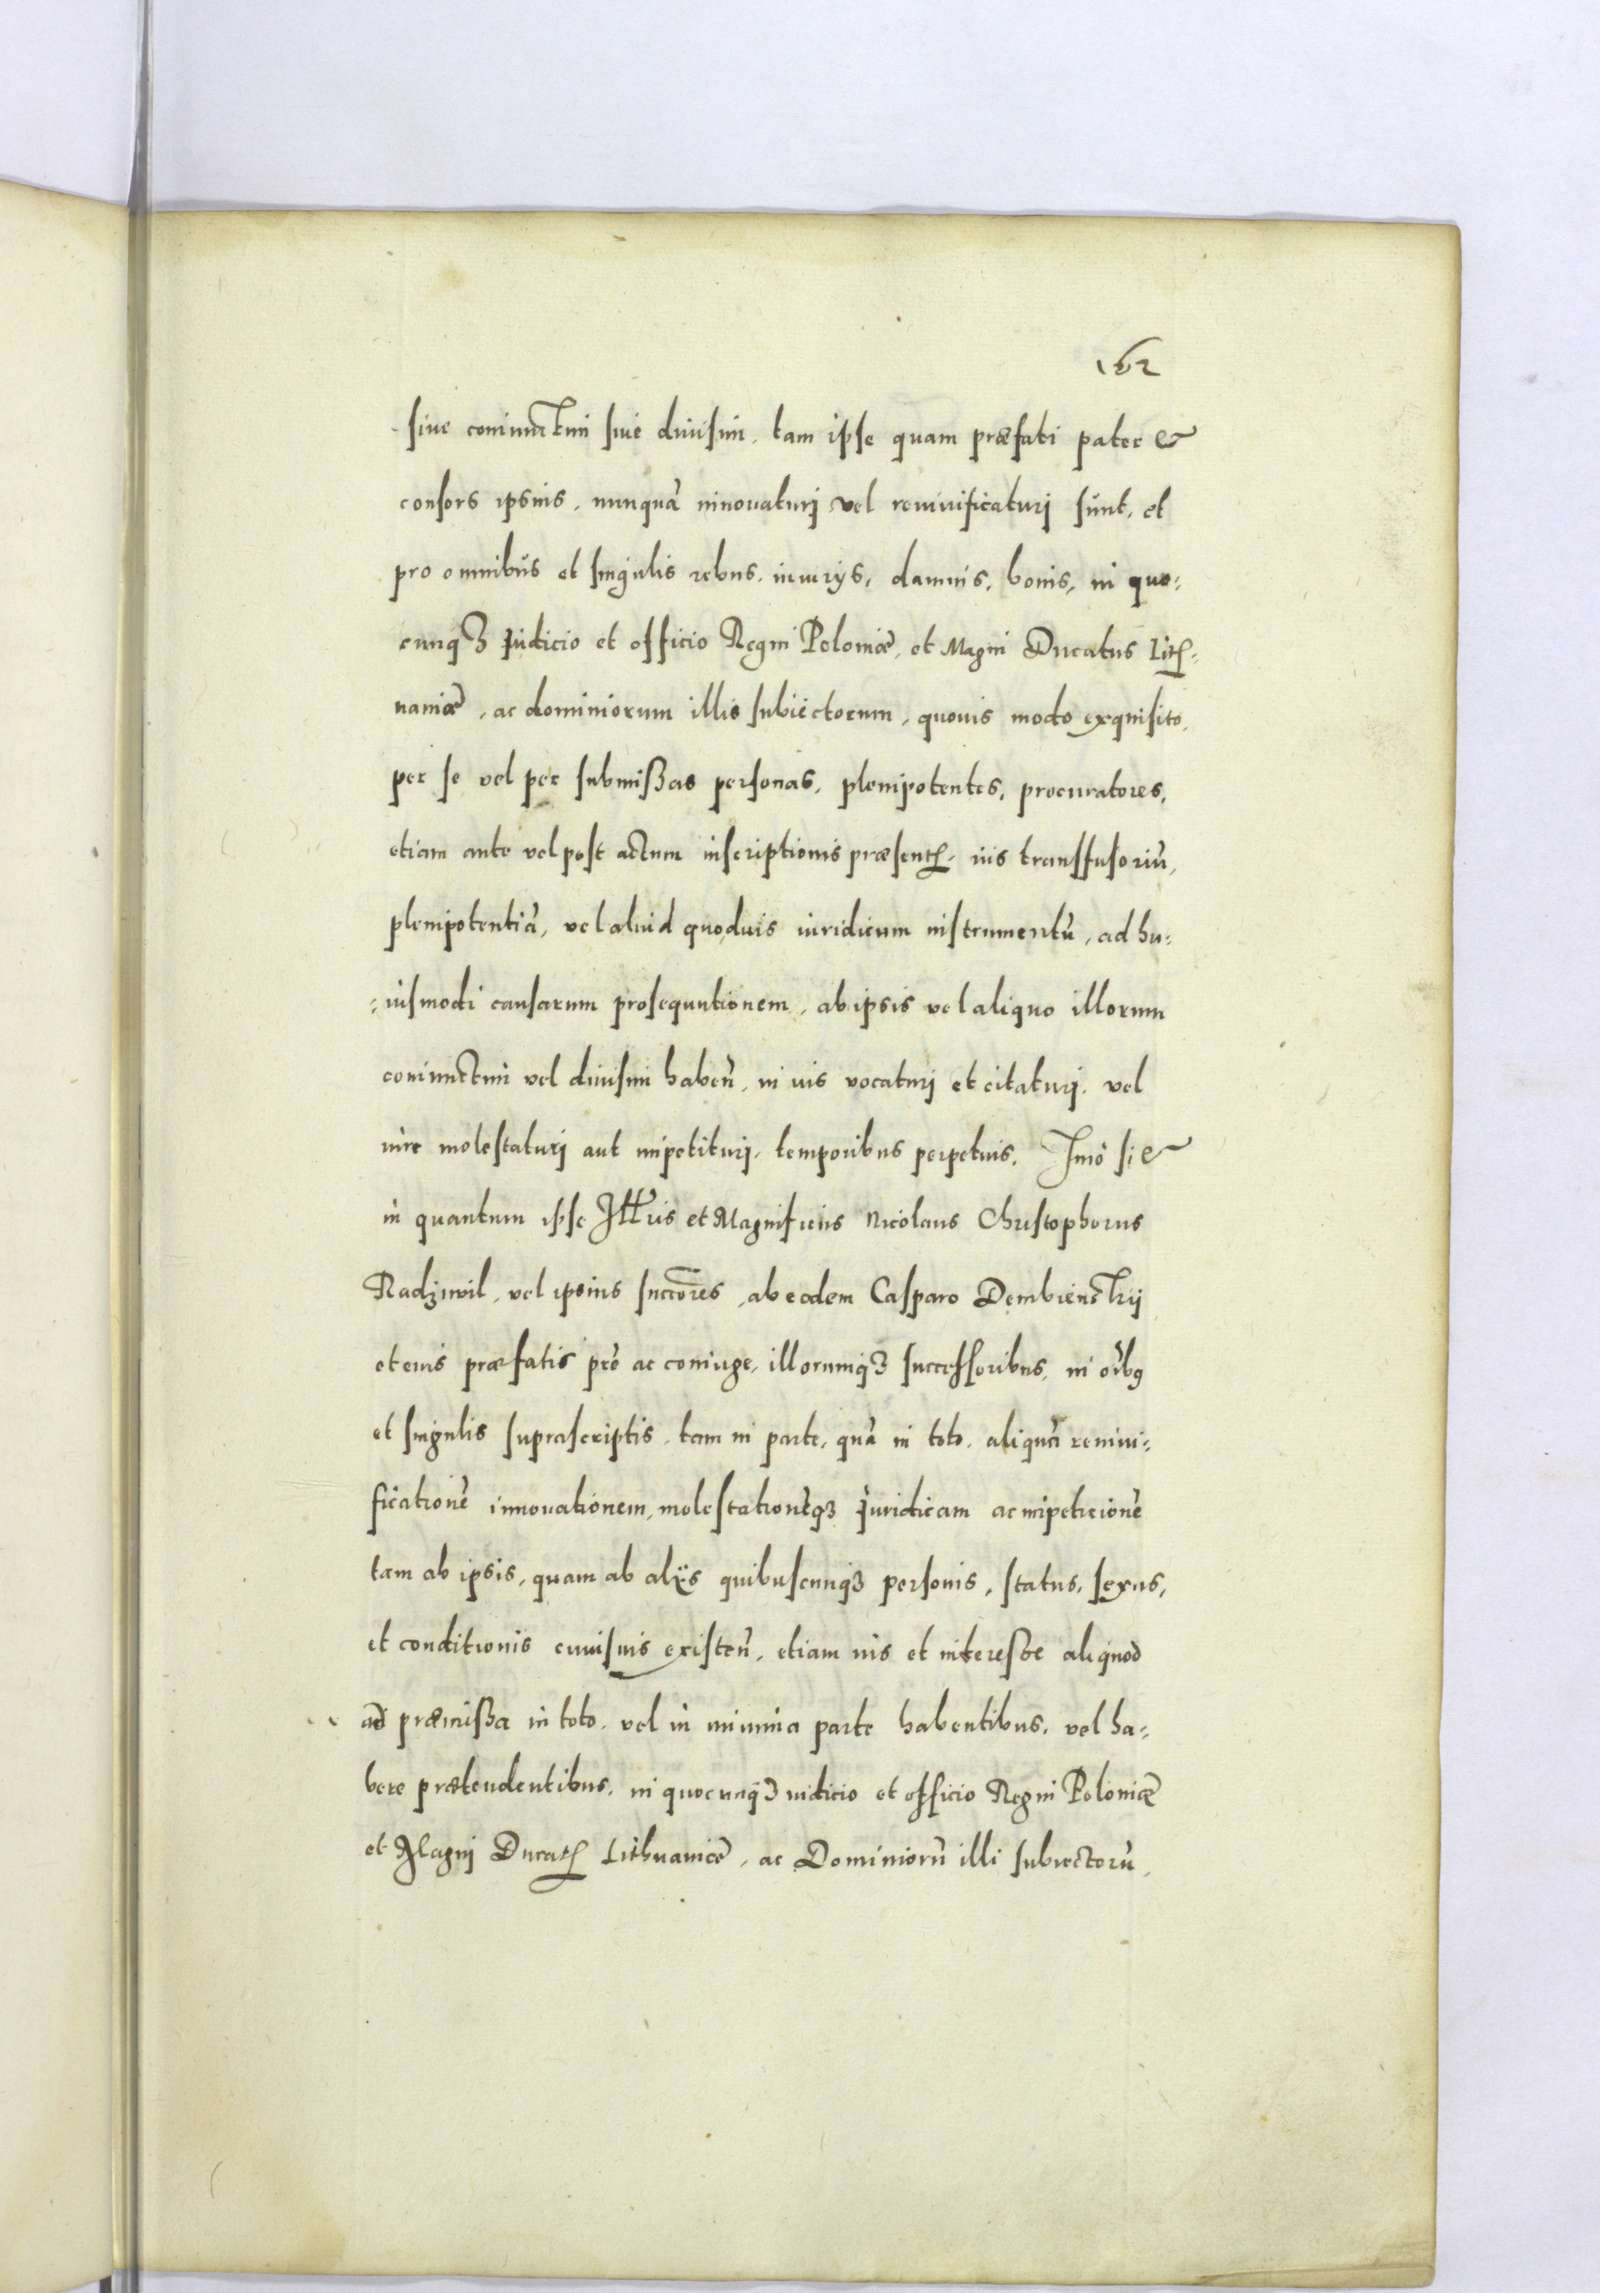 162
siue coniunctim siue diuisim, tam ipse quam præfati pater &
consors ipsius, nunquã innouaturj vel reuiuificaturj sunt, et
pro omnibus et singulis rebus, iniurÿs, damnis, bonis, in quo=
cunqȝ judicio et officio Regni Poloniæ, et Magni Ducatus Lith=
uaniæ, ac dominiorum illis subiectorum, quouis modo exquisito,
per se vel per submißas personas, plenipotentes, procuratores,
etiam ante vel post actum inscriptionis præsentis, ius transfusoriũ,
plenipotentiã, vel aliud quoduis iuridicum instrumentũ, ad hu=
=iusmodi causarum prosequutionem, ab ipsis vel aliquo illorum
coniunctim vel diuisim habeñ, in ius vocaturj et citaturj, vel
iure molestaturj aut impetiturj, temporibus perpetuis. Imò si &
in quantum ipse Illris et Magnificus Nicolaus Christophorus
Radziwil, vel ipsius succores, ab eodem Casparo Dembienstrij
et eius præfatis pre ac coniuge, illorumqȝ successoribus, in oibus
et singulis suprascriptis, tam in parte, quã in toto, aliquã reuiui=
ficationẽ innouationem, molestationẽqȝ juridicam ac impeticionẽ
tam ab ipsis, quam ab alÿs quibuscunqȝ personis, status, sexus,
et conditionis cuiusuis existeñ, etiam ius et interesse aliquod
ad præmißa in toto, vel in minima parte habentibus, vel ha=
bere prætendentibus, in quocunqȝ iudicio et officio Regni Poloniæ
et Magnj Ducatus Lithuaniæ, ac Dominiorũ illi subiectorũ,